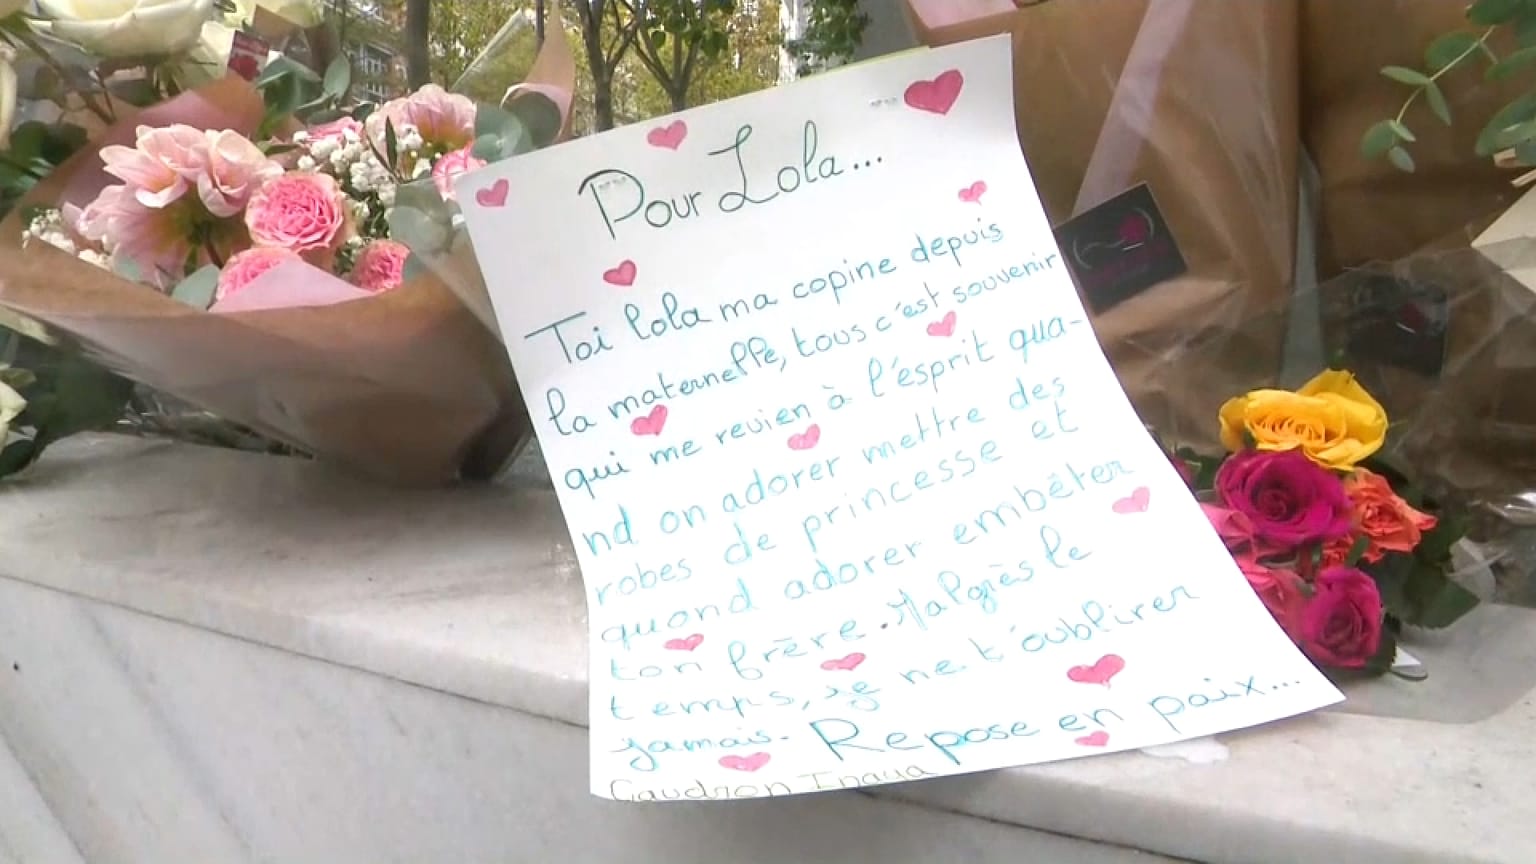 Pour Lola...
Toi lola ma copine depuis
la maternelle, tous c'est souvenir
qui me revien à l'esprit qua-
nd on adorer mettre des
robes de princesse et
quond adorer embêter
ton frère. Malgrès le
temps, je ne t'oublirer
jamais. Repose en paix...
Gaudron Inaya